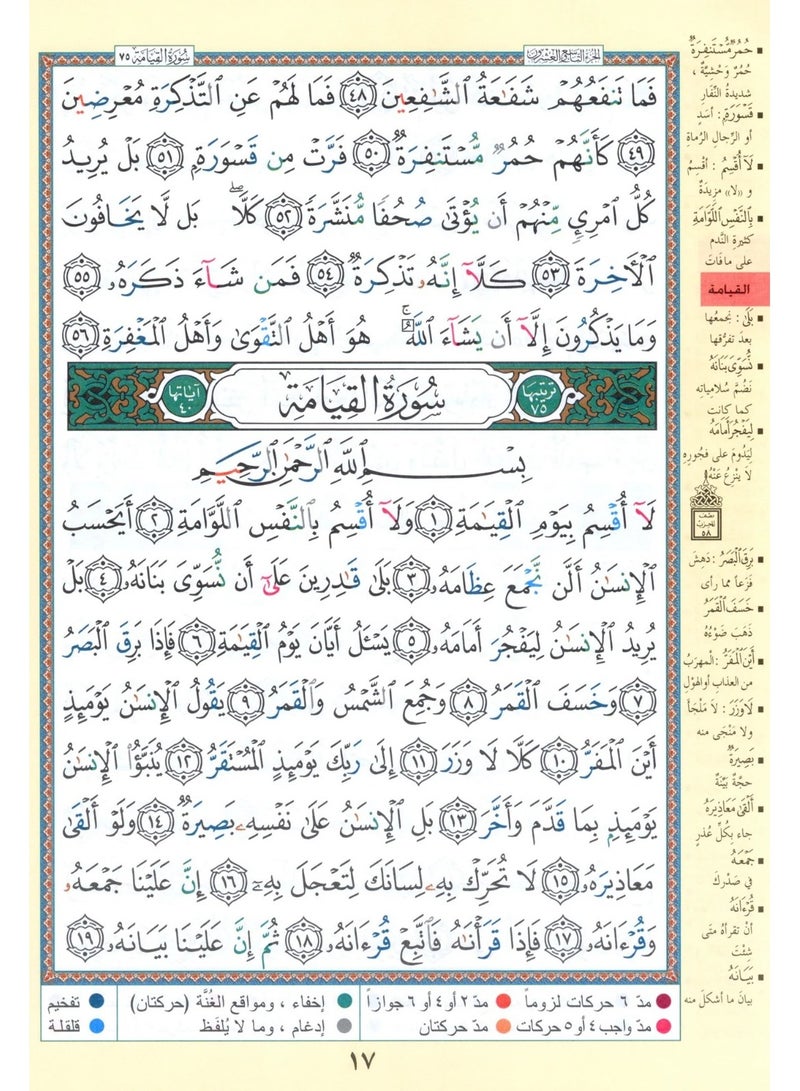 الجزء التاسع والعشرون
سُورَةُ القِيَامَة ٧٥
فَمَا تَنفَعُهُمْ شَفَٰعَةُ ٱلشَّٰفِعِينَ ٤٨ فَمَا لَهُمْ عَنِ ٱلتَّذْكِرَةِ مُعْرِضِينَ
٤٩ كَأَنَّهُمْ حُمُرٌ مُّسْتَنفِرَةٌ ٥٠ فَرَّتْ مِن قَسْوَرَةٍۭ ٥١ بَلْ يُرِيدُ
كُلُّ ٱمْرِئٍ مِّنْهُمْ أَن يُؤْتَىٰ صُحُفًا مُّنَشَّرَةً ٥٢ كَلَّاۖ بَل لَّا يَخَافُونَ
ٱلْأَخِرَةَ ٥٣ كَلَّآ إِنَّهُۥ تَذْكِرَةٌ ٥٤ فَمَن شَآءَ ذَكَرَهُۥ ٥٥
وَمَا يَذْكُرُونَ إِلَّآ أَن يَشَآءَ ٱللَّهُۚ هُوَ أَهْلُ ٱلتَّقْوَىٰ وَأَهْلُ ٱلْمَغْفِرَةِ ٥٦
ترتيبها ٧٥ سُورَةُ القِيَامَةِ آياتها ٤٠
بِسْمِ ٱللَّهِ ٱلرَّحْمَٰنِ ٱلرَّحِيمِ
لَآ أُقْسِمُ بِيَوْمِ ٱلْقِيَٰمَةِ ١ وَلَآ أُقْسِمُ بِٱلنَّفْسِ ٱللَّوَّامَةِ ٢ أَيَحْسَبُ
ٱلْإِنسَٰنُ أَلَّن نَّجْمَعَ عِظَامَهُۥ ٣ بَلَىٰ قَٰدِرِينَ عَلَىٰٓ أَن نُّسَوِّىَ بَنَانَهُۥ ٤ بَلْ
يُرِيدُ ٱلْإِنسَٰنُ لِيَفْجُرَ أَمَامَهُۥ ٥ يَسْـَٔلُ أَيَّانَ يَوْمُ ٱلْقِيَٰمَةِ ٦ فَإِذَا بَرِقَ ٱلْبَصَرُ
٧ وَخَسَفَ ٱلْقَمَرُ ٨ وَجُمِعَ ٱلشَّمْسُ وَٱلْقَمَرُ ٩ يَقُولُ ٱلْإِنسَٰنُ يَوْمَئِذٍ
أَيْنَ ٱلْمَفَرُّ ١٠ كَلَّا لَا وَزَرَ ١١ إِلَىٰ رَبِّكَ يَوْمَئِذٍ ٱلْمُسْتَقَرُّ ١٢ يُنَبَّؤُا۟ ٱلْإِنسَٰنُ
يَوْمَئِذٍۭ بِمَا قَدَّمَ وَأَخَّرَ ١٣ بَلِ ٱلْإِنسَٰنُ عَلَىٰ نَفْسِهِۦ بَصِيرَةٌ ١٤ وَلَوْ أَلْقَىٰ
مَعَاذِيرَهُۥ ١٥ لَا تُحَرِّكْ بِهِۦ لِسَانَكَ لِتَعْجَلَ بِهِۦٓ ١٦ إِنَّ عَلَيْنَا جَمْعَهُۥ
وَقُرْءَانَهُۥ ١٧ فَإِذَا قَرَأْنَٰهُ فَٱتَّبِعْ قُرْءَانَهُۥ ١٨ ثُمَّ إِنَّ عَلَيْنَا بَيَانَهُۥ ١٩
حُمُرٌ مُّسْتَنفِرَةٌ
حُمُرٌ وَحْشِيَّة ،
شديدةُ النِّفار
قَسْوَرَةٍ : أسَدٍ
أو الرِّجالِ الرُّماة
لَا أُقْسِمُ : أقْسِمُ
و «لا» مزيدَةٌ
بِالنَّفْسِ اللَّوَّامَةِ
كثيرة النَّدم
على ما فاتَ
القيامة
بَلَىٰ : نجمعُها
بعدَ تفرُّقها
نُّسَوِّيَ بَنَانَهُ
نَضُمَّ سُلامياتِه
كما كانت
لِيَفْجُرَ أَمَامَهُ
لِيَدُومَ على فجُورِهِ
لَا يَنْزِعُ عَنْهُ
نصف
الحزب
٥٨
بَرِقَ الْبَصَرُ : دَهِشَ
فزَعاً مما رأى
خَسَفَ الْقَمَرُ
ذَهَبَ ضَوْءُهُ
أَيْنَ الْمَفَرُّ : الْمهرَبُ
من العذاب أو الهَوْلِ
لَا وَزَرَ : لَا مَلْجَأَ
ولا مَنْجَى منه
بَصِيرَةٌ
حجَّة بَيِّنَةٌ
أَلْقَىٰ مَعَاذِيرَهُ
جاء بكلِّ عُذرٍ
جَمْعَهُ
في صَدْرِكَ
قُرْءَانَهُ
أنْ تقرأهُ متَى
شِئْتَ
بَيَانَهُ
بيانَ ما أشكلَ منه
مدّ ٦ حركات لزوماً
مدّ ٢ أو ٤ أو ٦ جوازاً
إخفاء ، ومواقع الغُنَّة (حركتان)
تفخيم
مدّ واجب ٤ أو ٥ حركات
مدّ حركتان
إدغام ، وما لا يُلفَظ
قلقلة
١٧